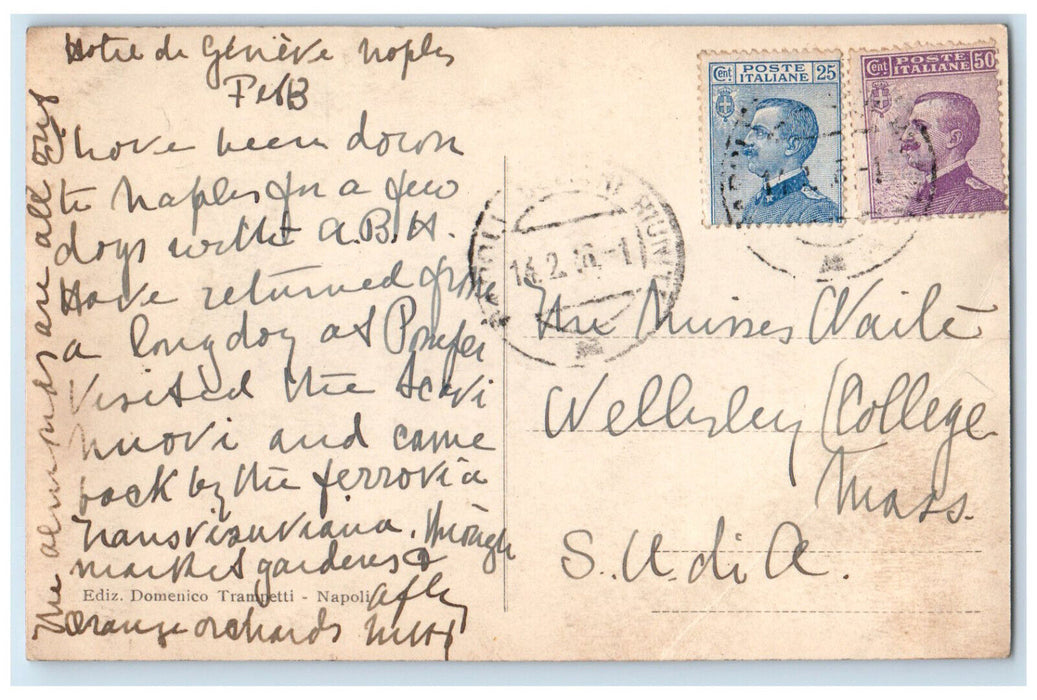 Hotel de Genève Naples
Feb 13
have been down
to Naples for a few
days with A.B.H.
Have returned from
a long day at Pompei
Visited the Scavi
nuovi and came
back by the ferrovia
transvesuviana. through
market gardens &
orange orchards
The almonds are all out
Ediz. Domenico Trampetti - Napoli
Cent. POSTE ITALIANE 25
Cent. POSTE ITALIANE 50
NAPOLI
The Misses Waite
Wellesley College
Mass.
S. U. di A.